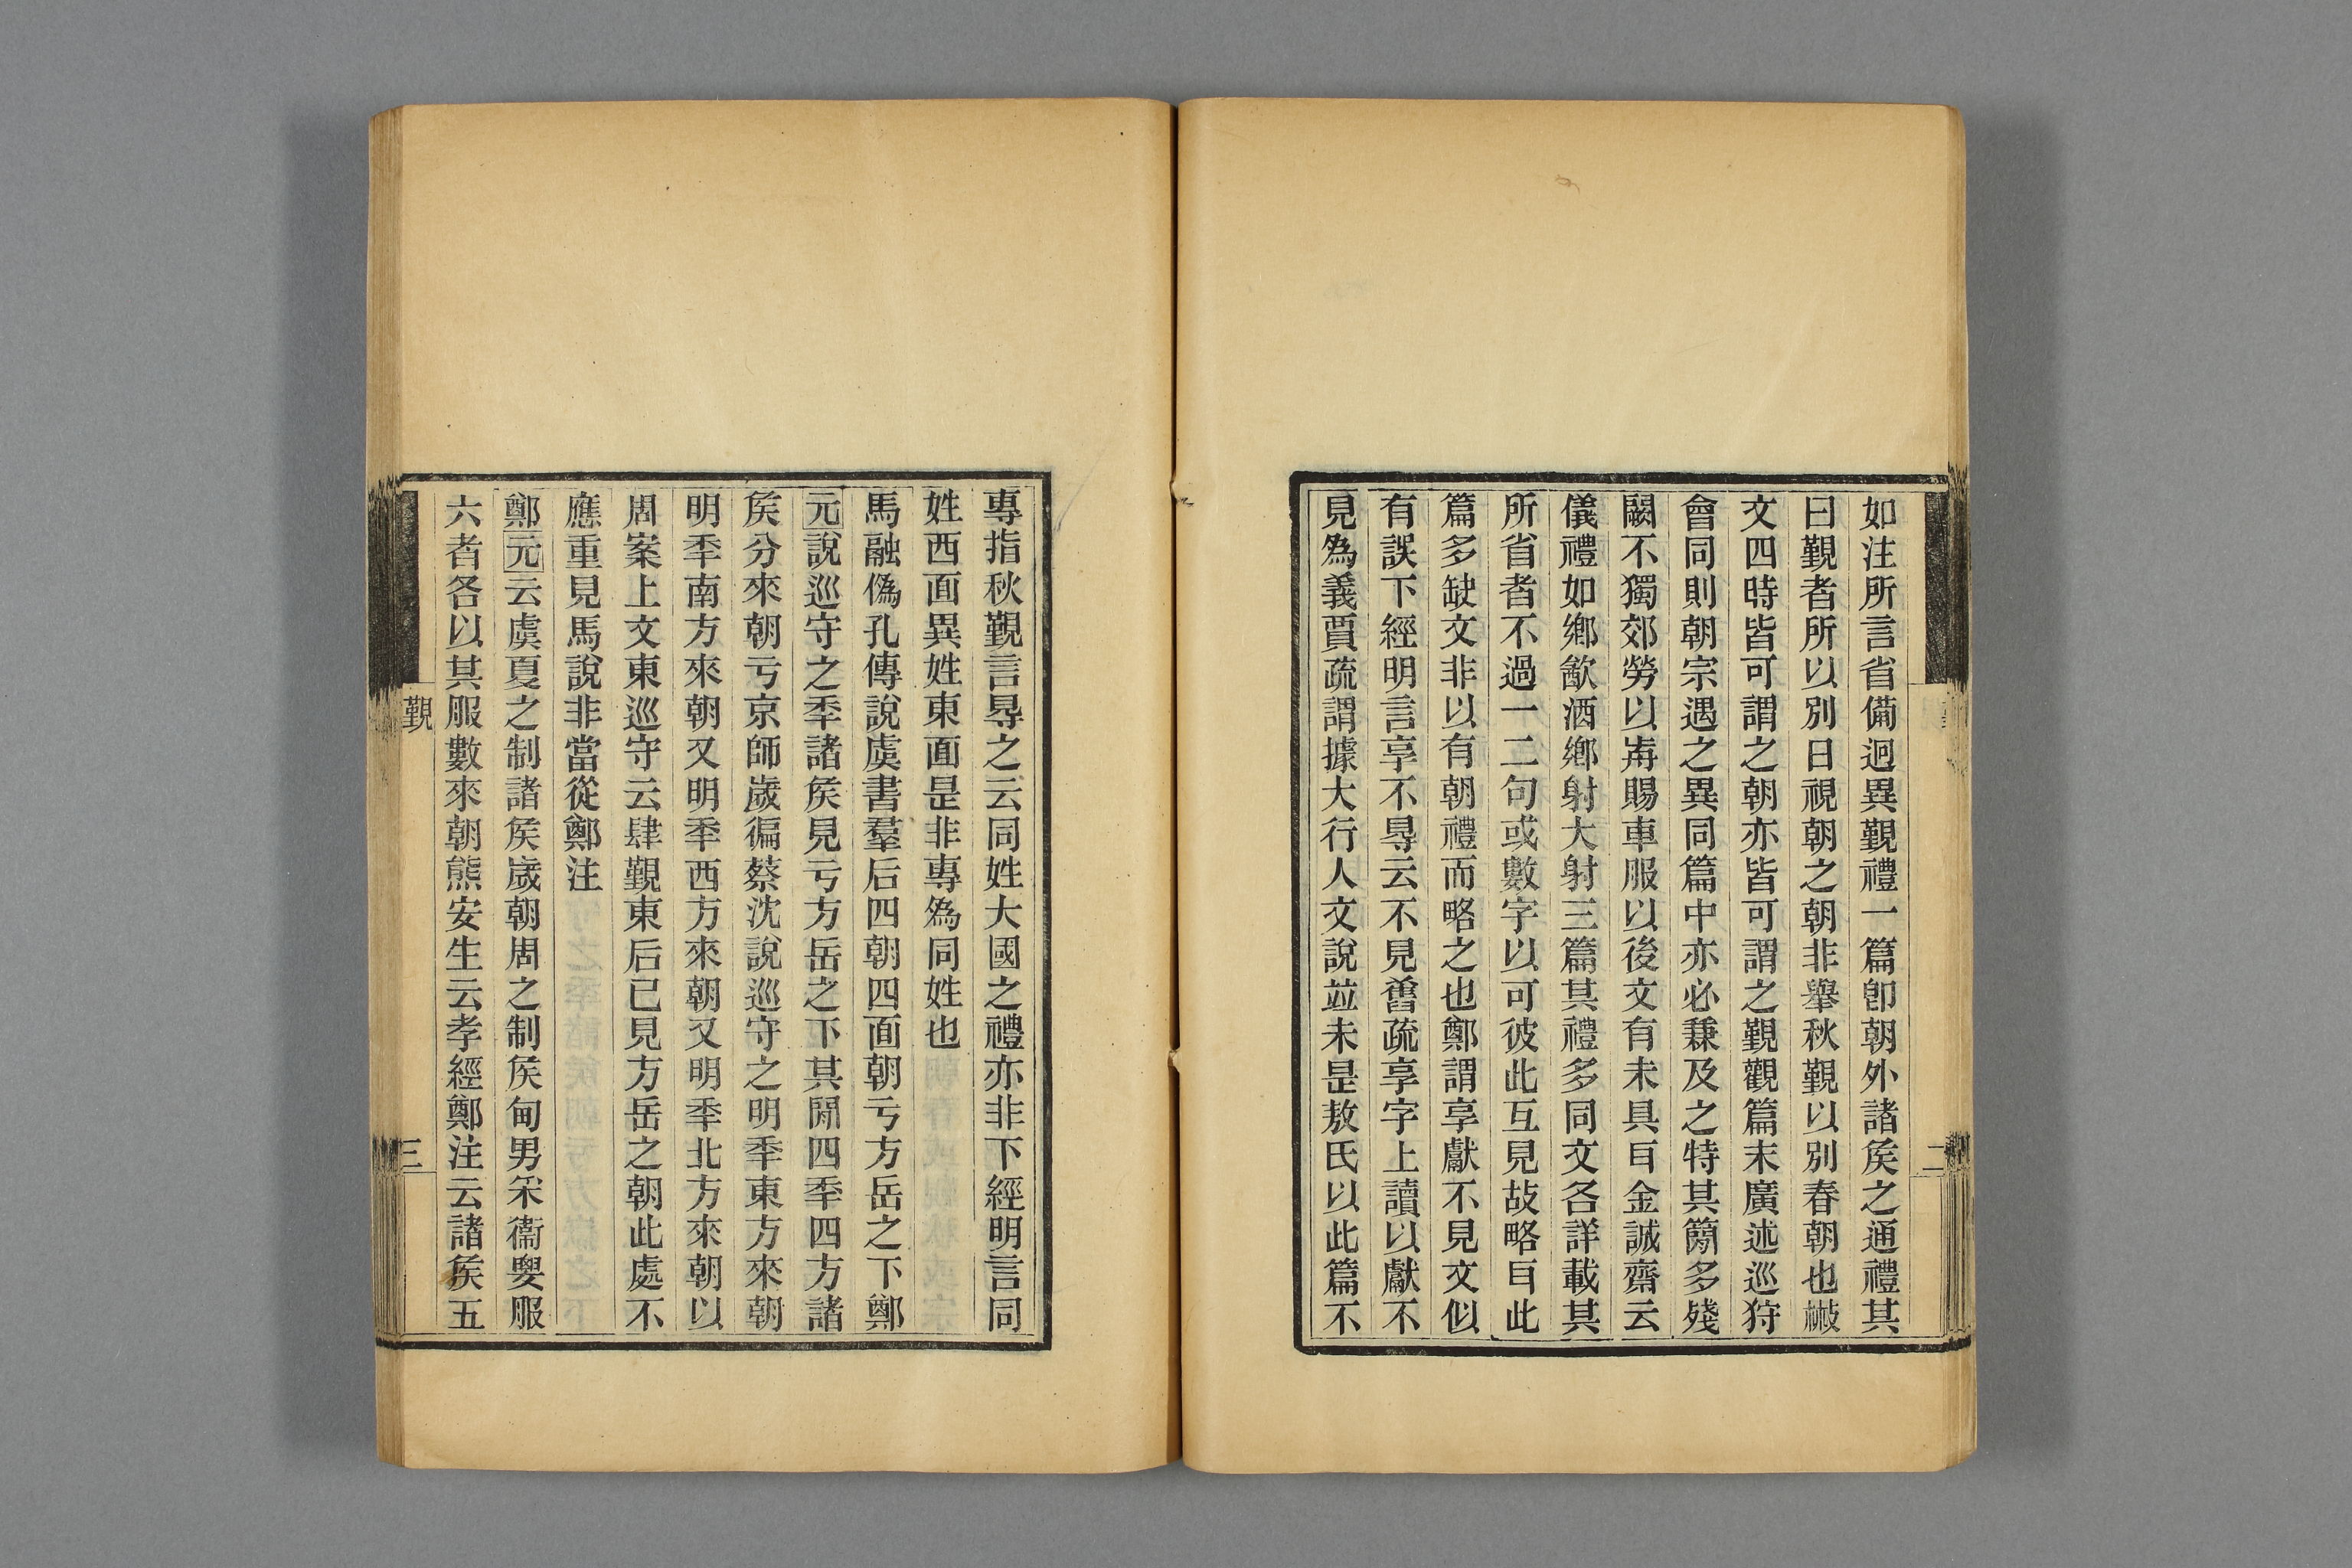 如注所言省備迥異覲禮一篇卽朝外諸矦之通禮其
曰覲者所以別日視朝之朝非舉秋覲以別春朝也
文四時皆可謂之朝亦皆可謂之覲觀篇末廣述巡狩
會同則朝宗遇之異同篇中亦必兼及之特其簡多殘
闕不獨郊勞以歬賜車服以後文有未具𦣹金誠齋云
儀禮如鄉飲酒鄉射大射三篇其禮多同文各詳載其
所省者不過一二句或數字以可彼此互見故略𦣹此
篇多缺文非以有朝禮而略之也鄭謂享獻不見文似
有誤下經明言享不㝵云不見舊疏享字上讀以獻不
見爲義賈疏謂據大行人文說竝未是敖氏以此篇不
二
專指秋覲言㝵之云同姓大國之禮亦非下經明言同
姓西面異姓東面是非專爲同姓也
馬融僞孔傳說虞書羣后四朝四面朝亏方岳之下鄭
元說巡守之秊諸矦見亏方岳之下其閒四秊四方諸
矦分來朝亏京師歲徧蔡沈說巡守之明秊東方來朝
明秊南方來朝又明秊西方來朝又明秊北方來朝以
周案上文東巡守云肆覲東后已見方岳之朝此處不
應重見馬說非當從鄭注
鄭元云虞夏之制諸矦歲朝周之制矦甸男采衞要服
六者各以其服數來朝熊安生云孝經鄭注云諸矦五
覲
三